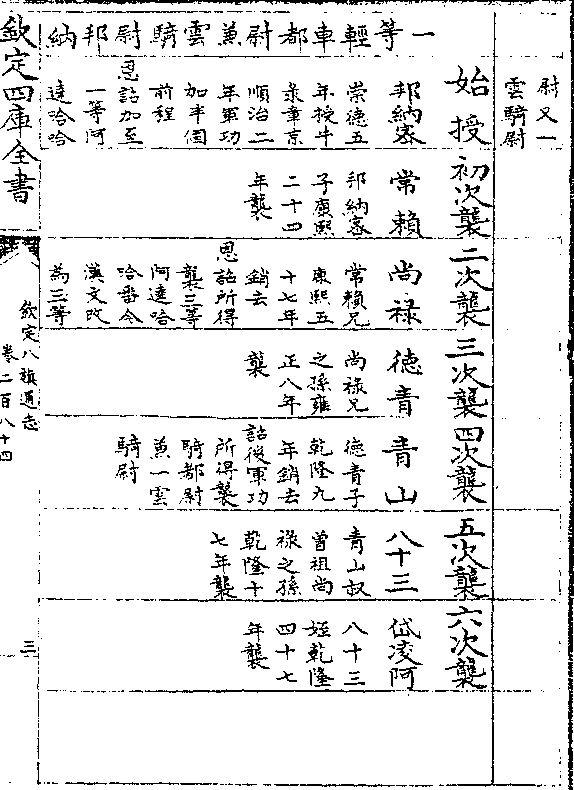 尉又一
雲騎尉
一等輕車都尉兼雲騎尉邦納
始授
邦納密
崇德五
年授牛
彔章京
順治二
年軍功
加半個
前程
恩詔加至
一等阿
達哈哈
初次襲
常賴
邦納密
子康熙
二十四
年襲
二次襲
尚祿
常賴兄
康熙五
十七年
銷去
恩詔所得
襲三等
阿達哈
哈番今
漢文改
為三等
三次襲
德青
尚祿兄
之孫雍
正八年
襲
四次襲
青山
德青子
乾隆九
年銷去
詔後軍功
所得襲
騎都尉
兼一雲
騎尉
五次襲
八十三
青山叔
曾祖尚
祿之孫
乾隆十
七年襲
六次襲
岱凌阿
八十三
姪乾隆
四十七
年襲
欽定四庫全書
欽定八旗通志
卷二百八十四
三